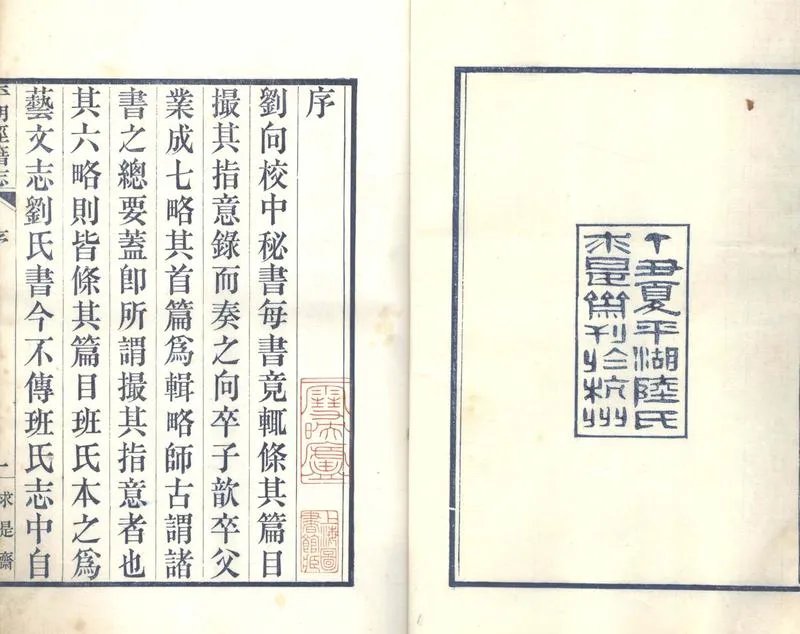 丁丑夏平湖陸氏
求是齋刊於杭州
序
劉向校中秘書每書竟輒條其篇目
撮其指意錄而奏之向卒子歆卒父
業成七略其首篇爲輯略師古謂諸
書之總要蓋卽所謂撮其指意者也
其六略則皆條其篇目班氏本之爲
藝文志劉氏書今不傳班氏志中自
經籍志 序 一 求是齋
上海圖
書館藏